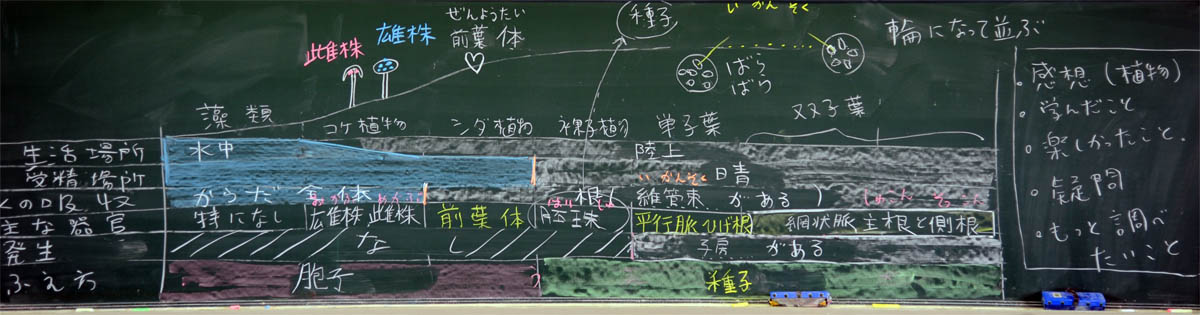 いかんそく
種子
ぜんようたい
前葉体
雄株
雌株
輪になって並ぶ
ばら
ばら
藻類
コケ植物
シダ植物
裸子植物
単子葉
双子葉
生活場所
水中
陸上
受精場所
いかんそく
からだ全体
根
維管束がある
主な器官
特になし
雄株,雌株
前葉体
胚珠
平行脈
ひげ根
網状脈,主根と側根
発生
なし
子房がある
ふえ方
胞子
種子
感想(植物)
・学んだこと
・楽しかったこと.
・疑問
・もっと調べ
たいこと